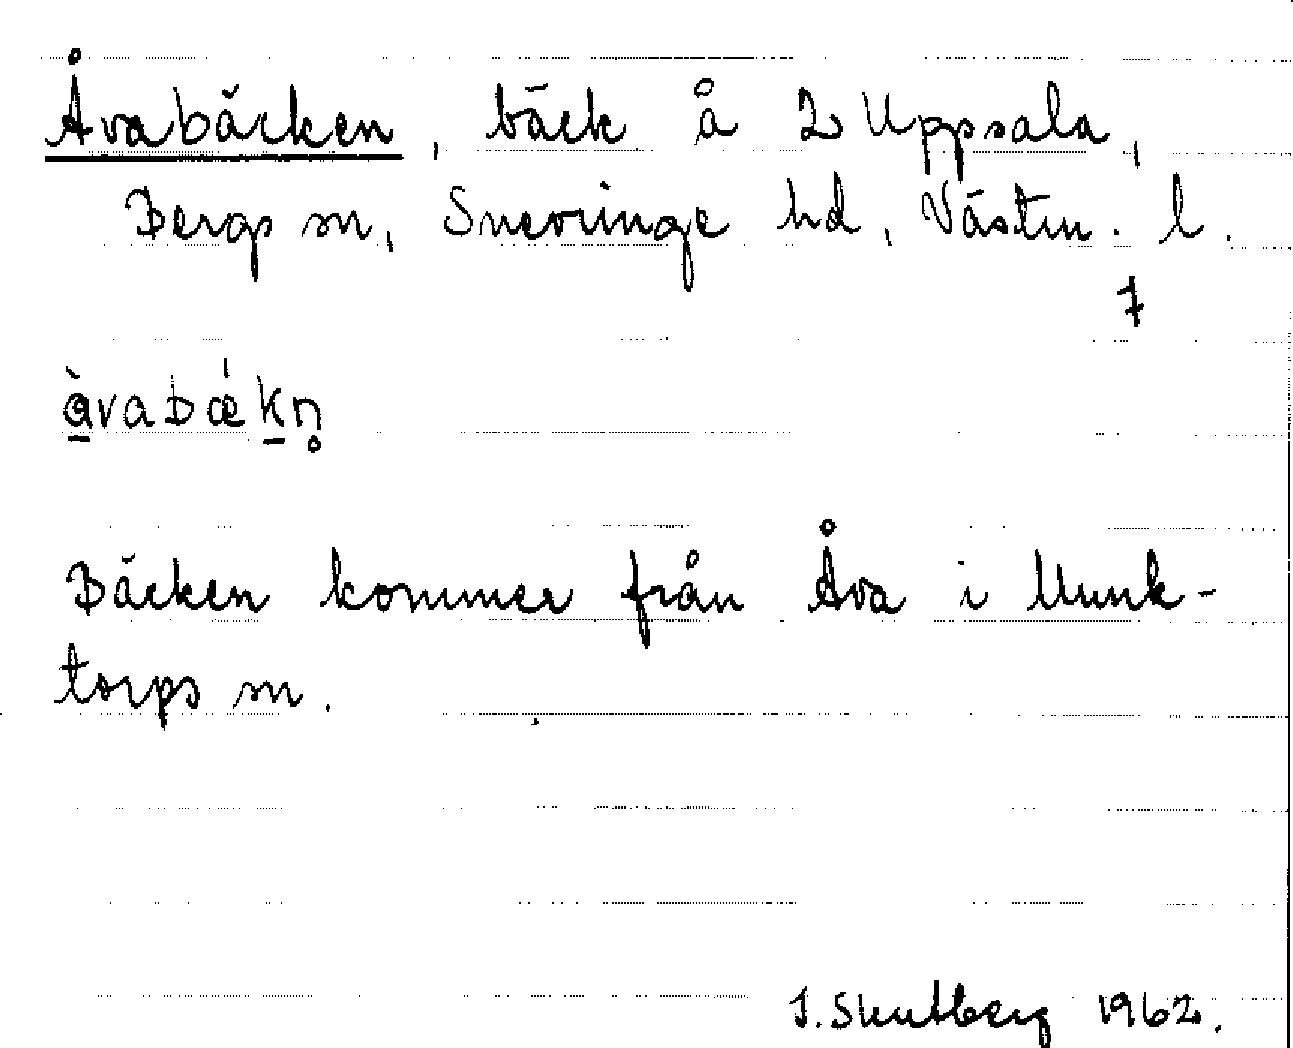 Åvabäcken, bäck å 2 Uppsala,
Bergs sn, Snevringe hd, Västm. l.
7
àvabǽkn̥
Bäcken kommer från Åva i Munk-
torps sn.
J. Skutberg 1962.